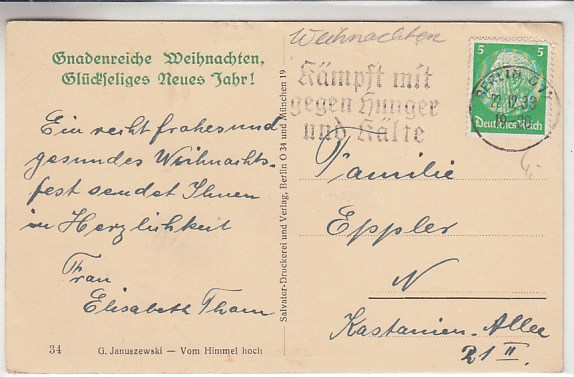 Weihnachten
Gnadenreiche Weihnachten,
Glückseliges Neues Jahr!
Kämpft mit
gegen Hunger
und Kälte
5 5
Deutsches Reich
BERLIN
22.12.33
Ein recht frohes und
gesundes Weihnachts-
fest sendet Ihnen
in Herzlichkeit
Frau
Elisabeth Thom
Salvator-Druckerei und Verlag, Berlin O 34 und München 19
Familie
Eppler
N
Kastanien-Allee
21 II.
34 G. Januszewski — Vom Himmel hoch